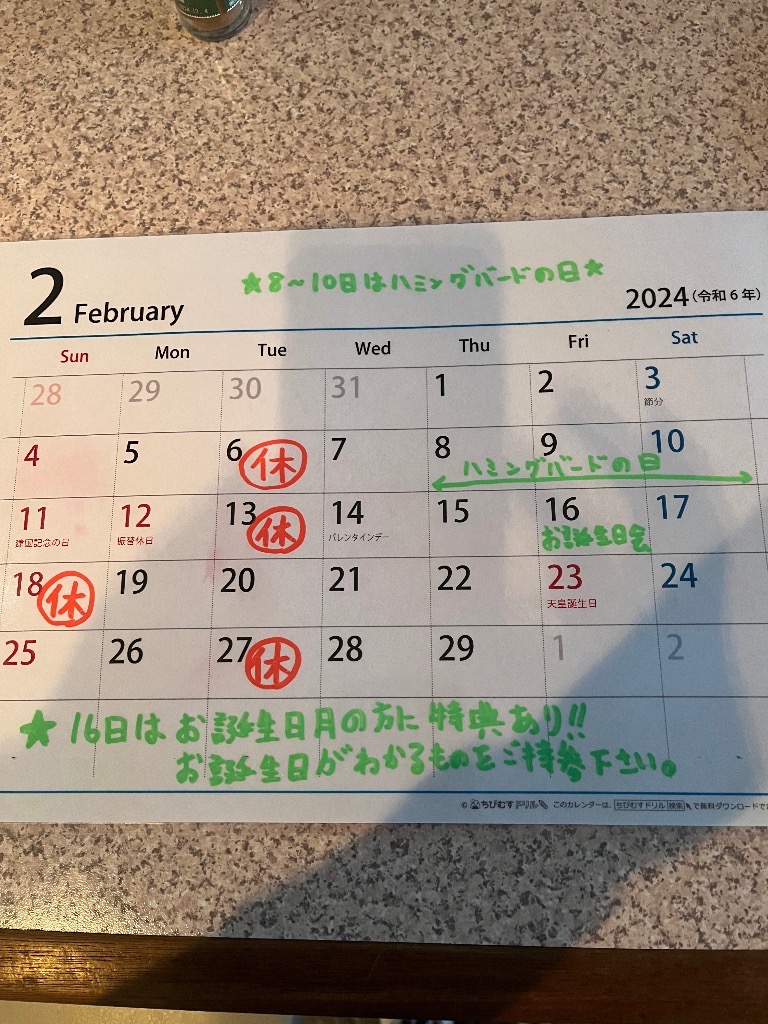 ★8〜10日はハミングバードの日★
2 February
2024(令和6年)
Sun Mon Tue Wed Thu Fri Sat
28 29 30 31 1 2 3
節分
4 5 6 休 7 8 9 10
ハミングバードの日
11 12 13 休 14 15 16 17
建国記念の日 振替休日 バレンタインデー お誕生日会
18 休 19 20 21 22 23 24
天皇誕生日
25 26 27 休 28 29 1 2
★16日はお誕生日月の方に特典あり!!
お誕生日がわかるものをご持参下さい。
© ちびむすドリル このカレンダーは、ちびむすドリル 検索 で無料ダウンロードで